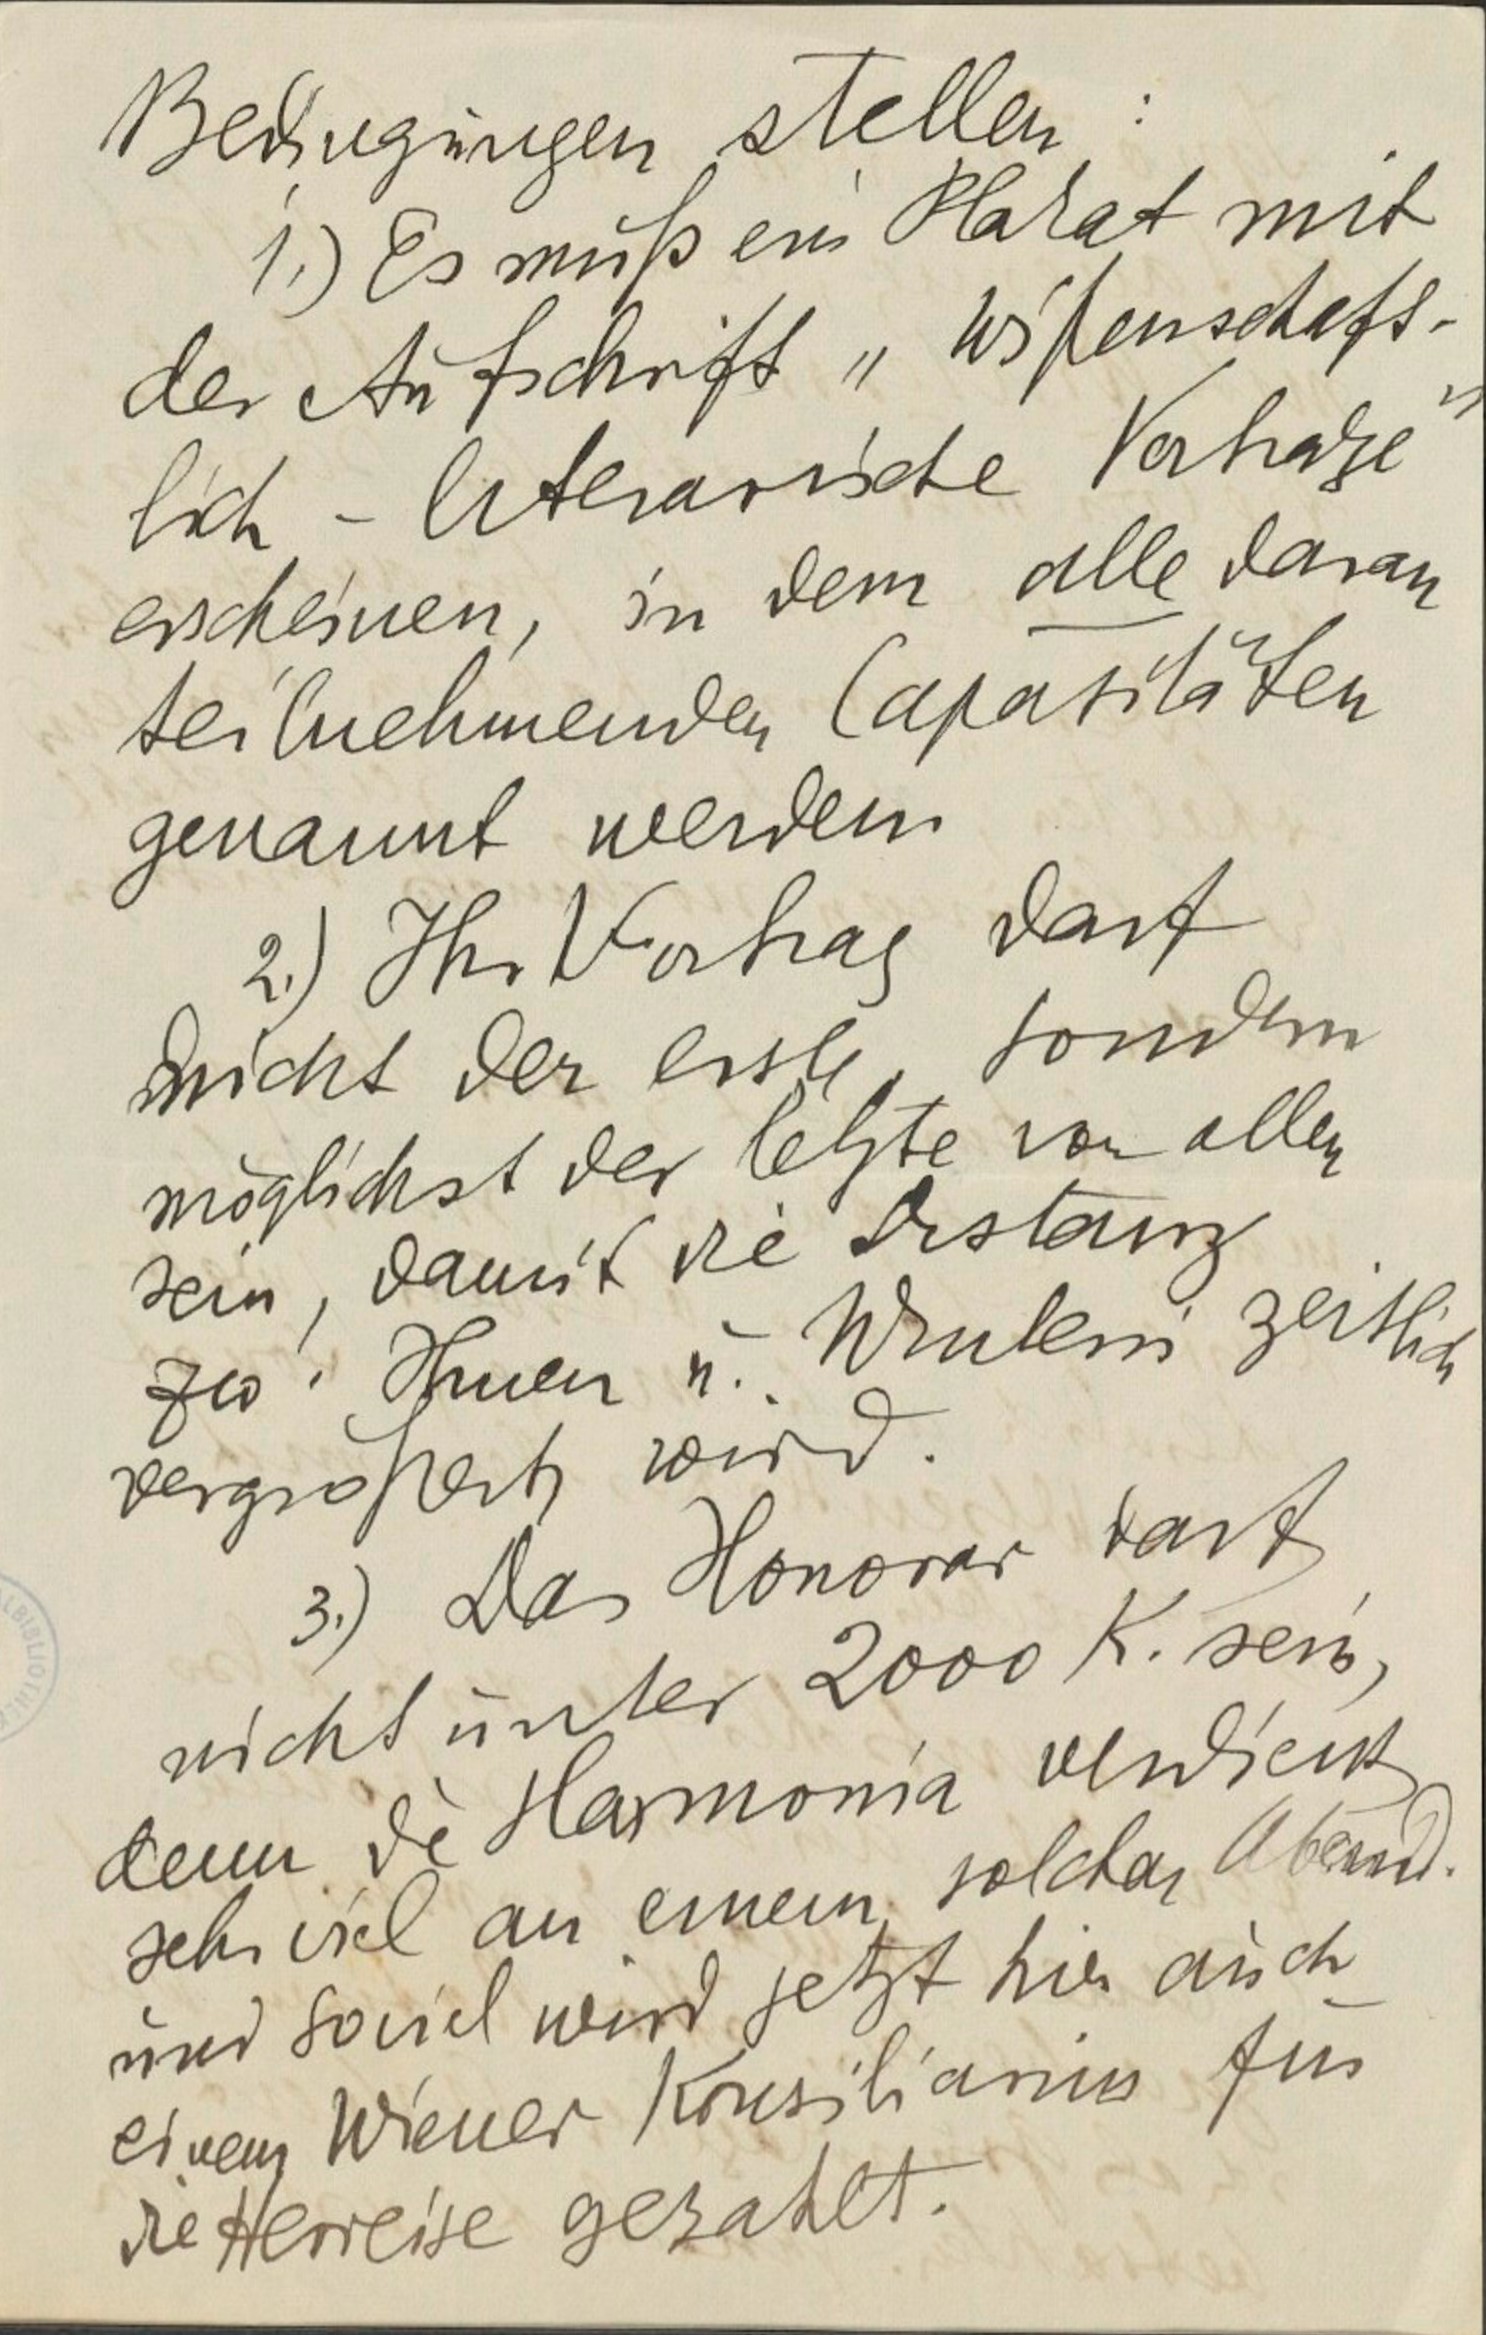 Bedingungen stellen:
1.) Es muß ein Plakat mit
der Aufschrift „Wißenschaft-
lich - literarische Vorträge"
erscheinen, in dem alle daran
teilnehmenden Capazitäten
genannt werden
2.) Ihr Vortrag darf
nicht der erste, sondern
möglichst der letzte von allen
sein, damit die Distanz
zw. Ihnen u. zeitlich
vergrößert wird.
3.) Das Honorar darf
nicht unter 2000 K. sein,
denn die Harmonia verdient
sehr viel an einem solchen Abend.
und soviel wird jetzt hier auch
einem Wiener Konsiliarius für
die Herreise gezahlt.
ALBIBLIOTHE